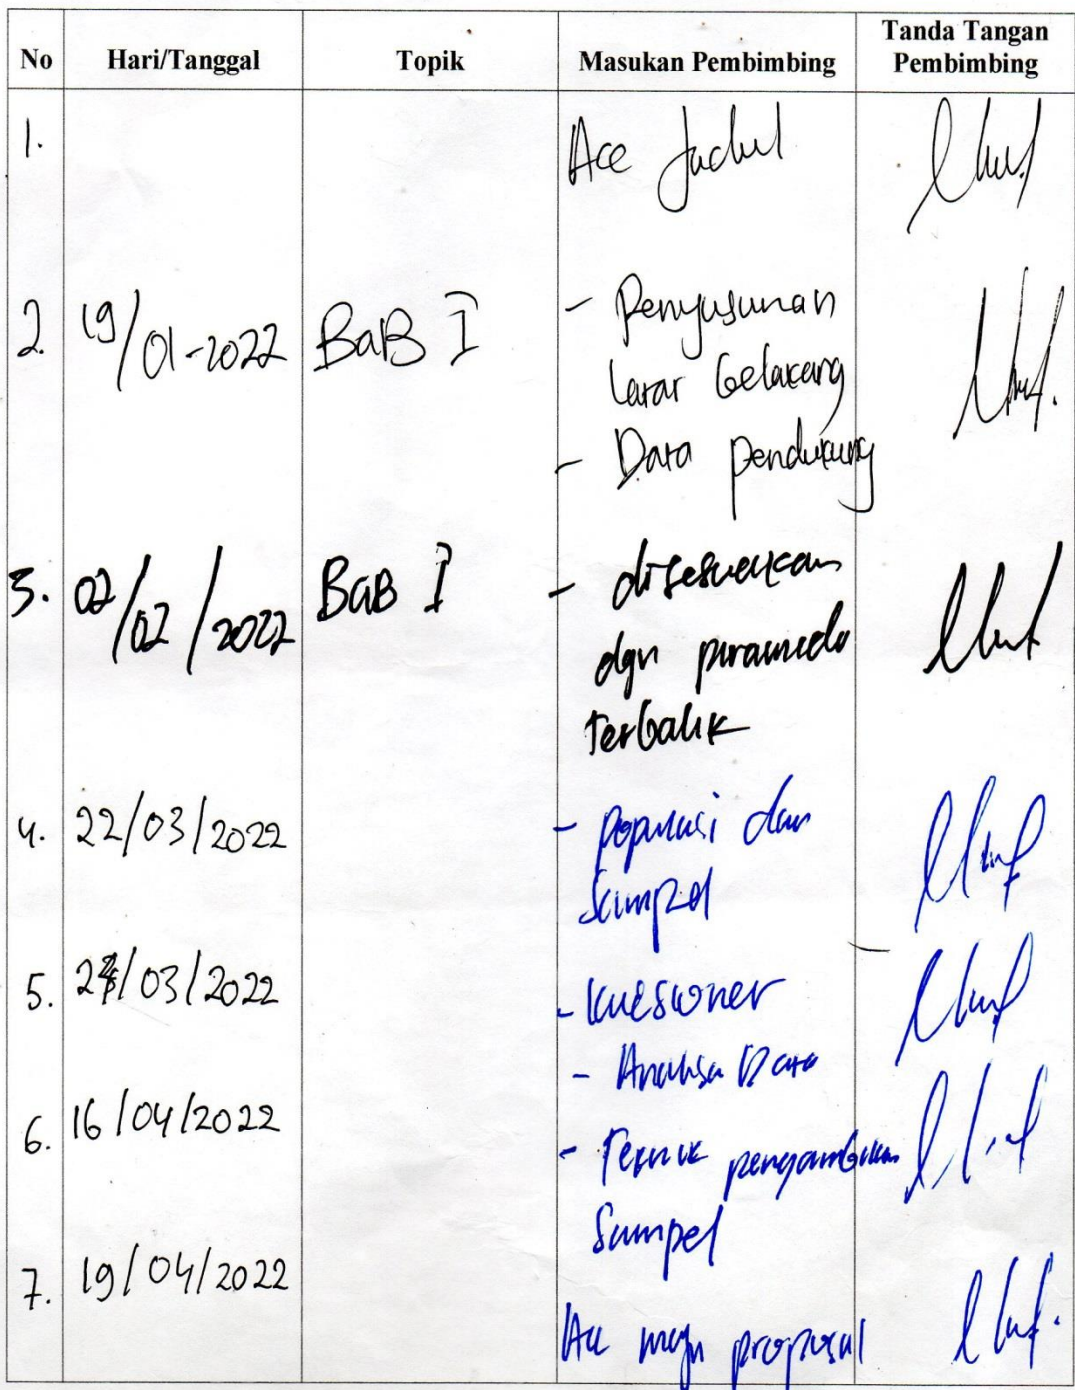 No Hari/Tanggal Topik Masukan Pembimbing Tanda Tangan Pembimbing
1. Acc Judul
2. 19/01-2022 BaB I - Penyusunan
Latar belakang
- Data pendukung
3. 02/02/2022 BaB I - disesuaikan
dgn piramida
terbalik
4. 22/03/2022 - populasi dan
Sampel
5. /03/2022 - kuesioner
- Analisa Data
6. 16/04/2022 - Teknik pengambilan
Sampel
7. 19/04/2022
Acc maju proposal